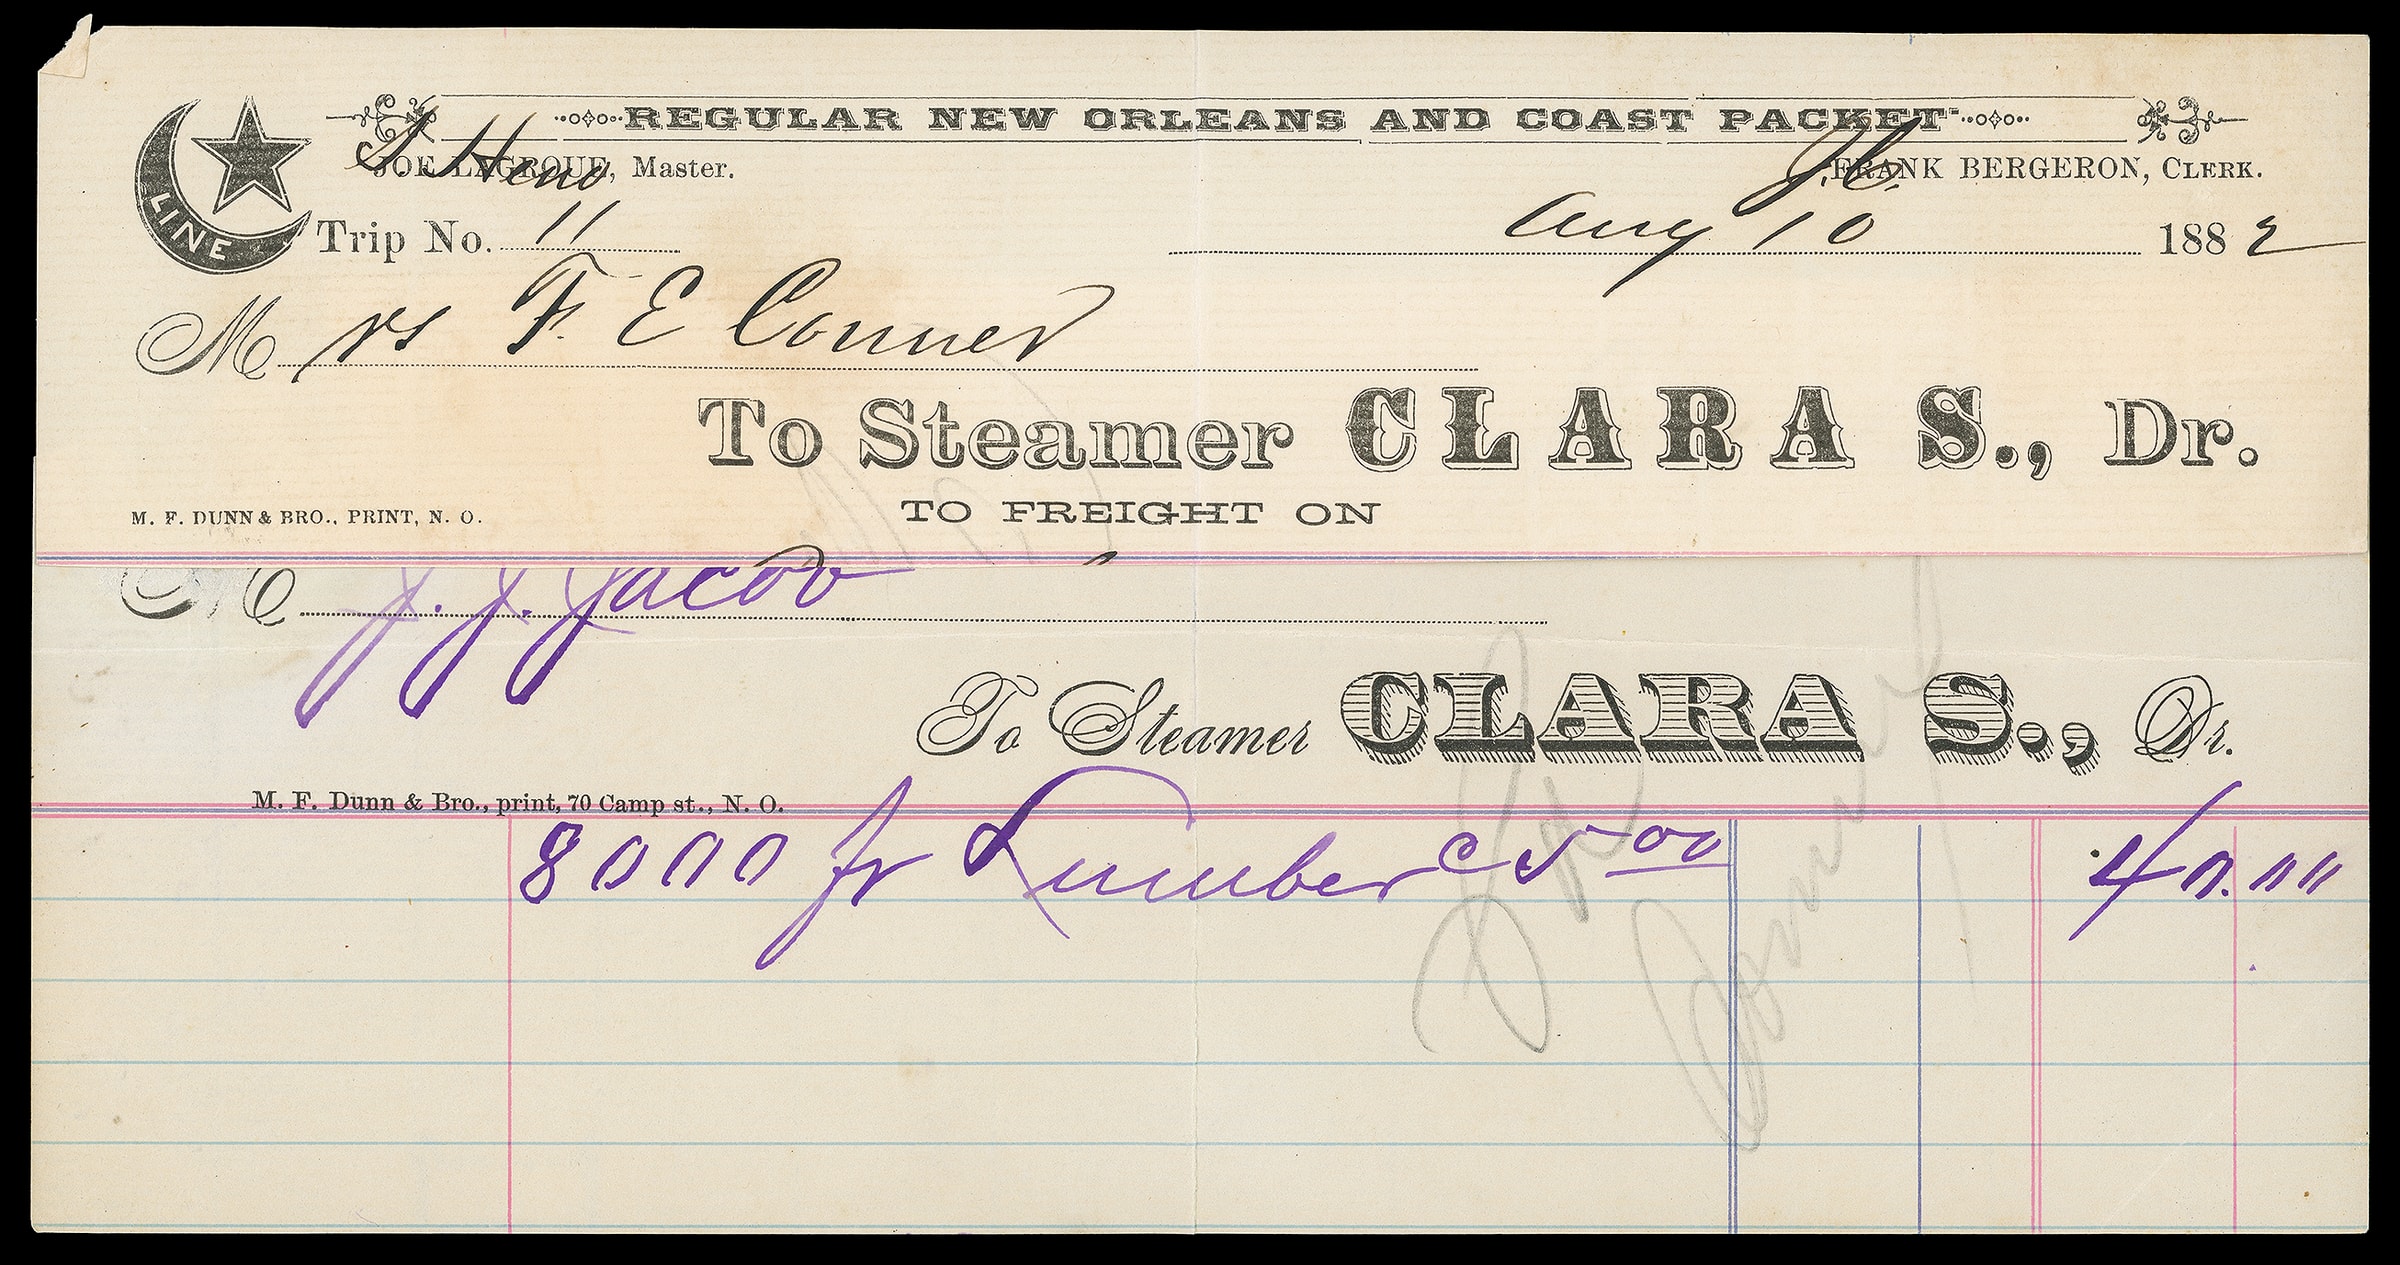 REGULAR NEW ORLEANS AND COAST PACKET
JOE LAGROUE, Master. FRANK BERGERON, CLERK.
LINE
Trip No. 11 Aug 10 1882
Mrs F. E Conner
To Steamer CLARA S., Dr.
M. F. DUNN & BRO., PRINT, N. O. TO FREIGHT ON
J. J. Jacob
To Steamer CLARA S., Dr.
M. F. Dunn & Bro., print, 70 Camp st., N. O.
8000 fr Lumber c 5 00 40.00